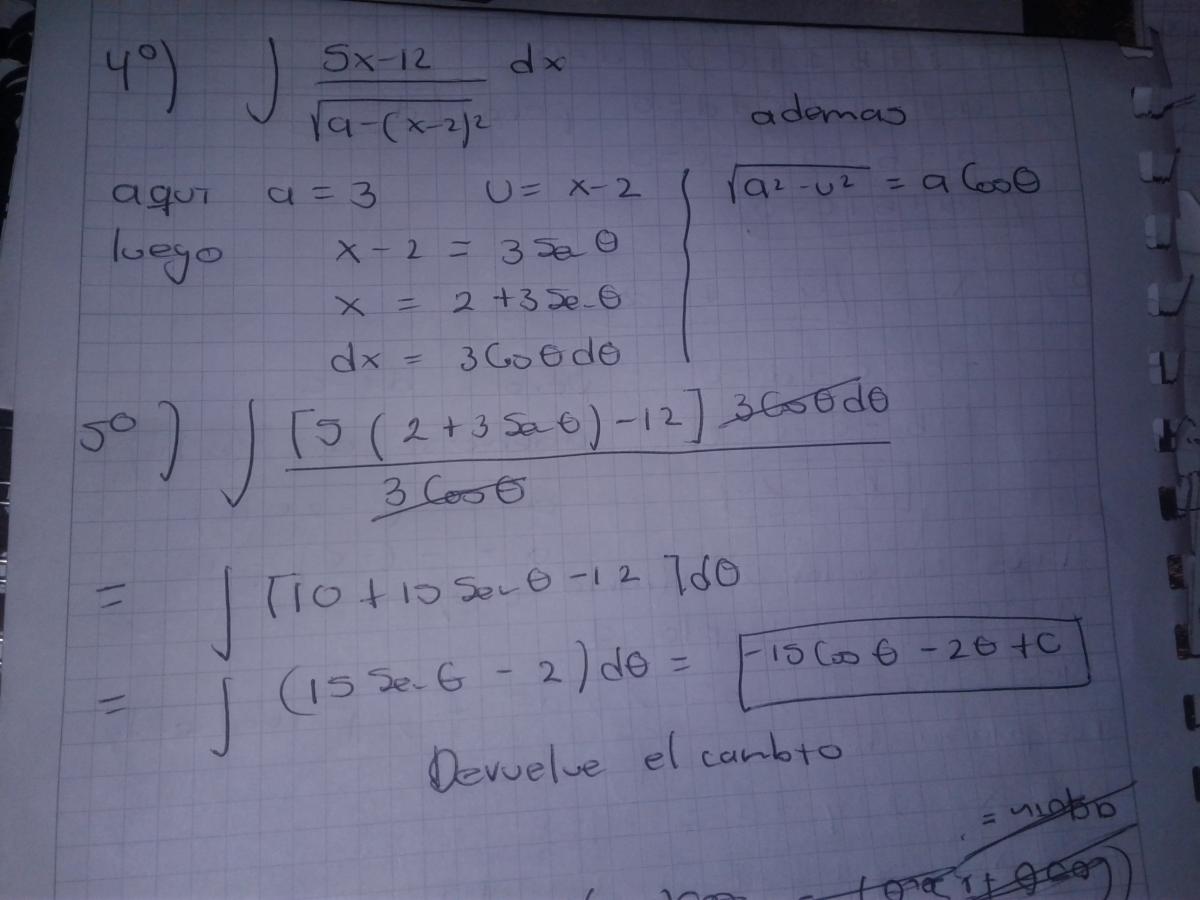 4º) ∫ (5x-12)/√(9-(x-2)²) dx
ademas
aquí a = 3 U = x-2 √(a²-u²) = a Cosθ
luego x-2 = 3 Senθ
x = 2+3 Senθ
dx = 3 Cosθ dθ
5º) ∫ [5(2+3 Senθ)-12] 3 Cosθ dθ / 3 Cosθ
= ∫ [10+15 Senθ -12] dθ
= ∫ (15 Senθ - 2) dθ = -15 Cosθ - 2θ + C
Devuelve el cambio